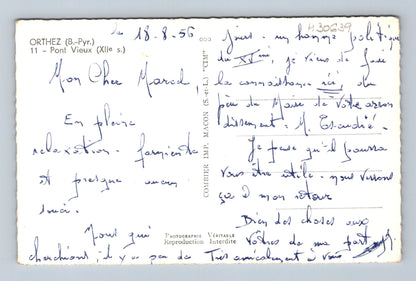 ORTHEZ (B.-Pyr.)
11 - Pont Vieux (XIIe s.)
le 18-8-56
Mon Cher Marcel,
En pleine
relaxation. farniente
et presque aucun
souci.
Mous qui
cherchions, il y a peu de
COMBIER IMP. MACON (S.-et-L.) "CIM"
Photographie Véritable
Reproduction Interdite
430639
jours - un homme politique
du XVème, je viens de faire
la connaissance ici, du
père du Maire de Votre arron
dissement : M.
Je pense qu'il pourra
Vous être utile - nous verrons
ça à mon retour
Bien des choses aux
Vôtres de ma part
Très amicalement à vous